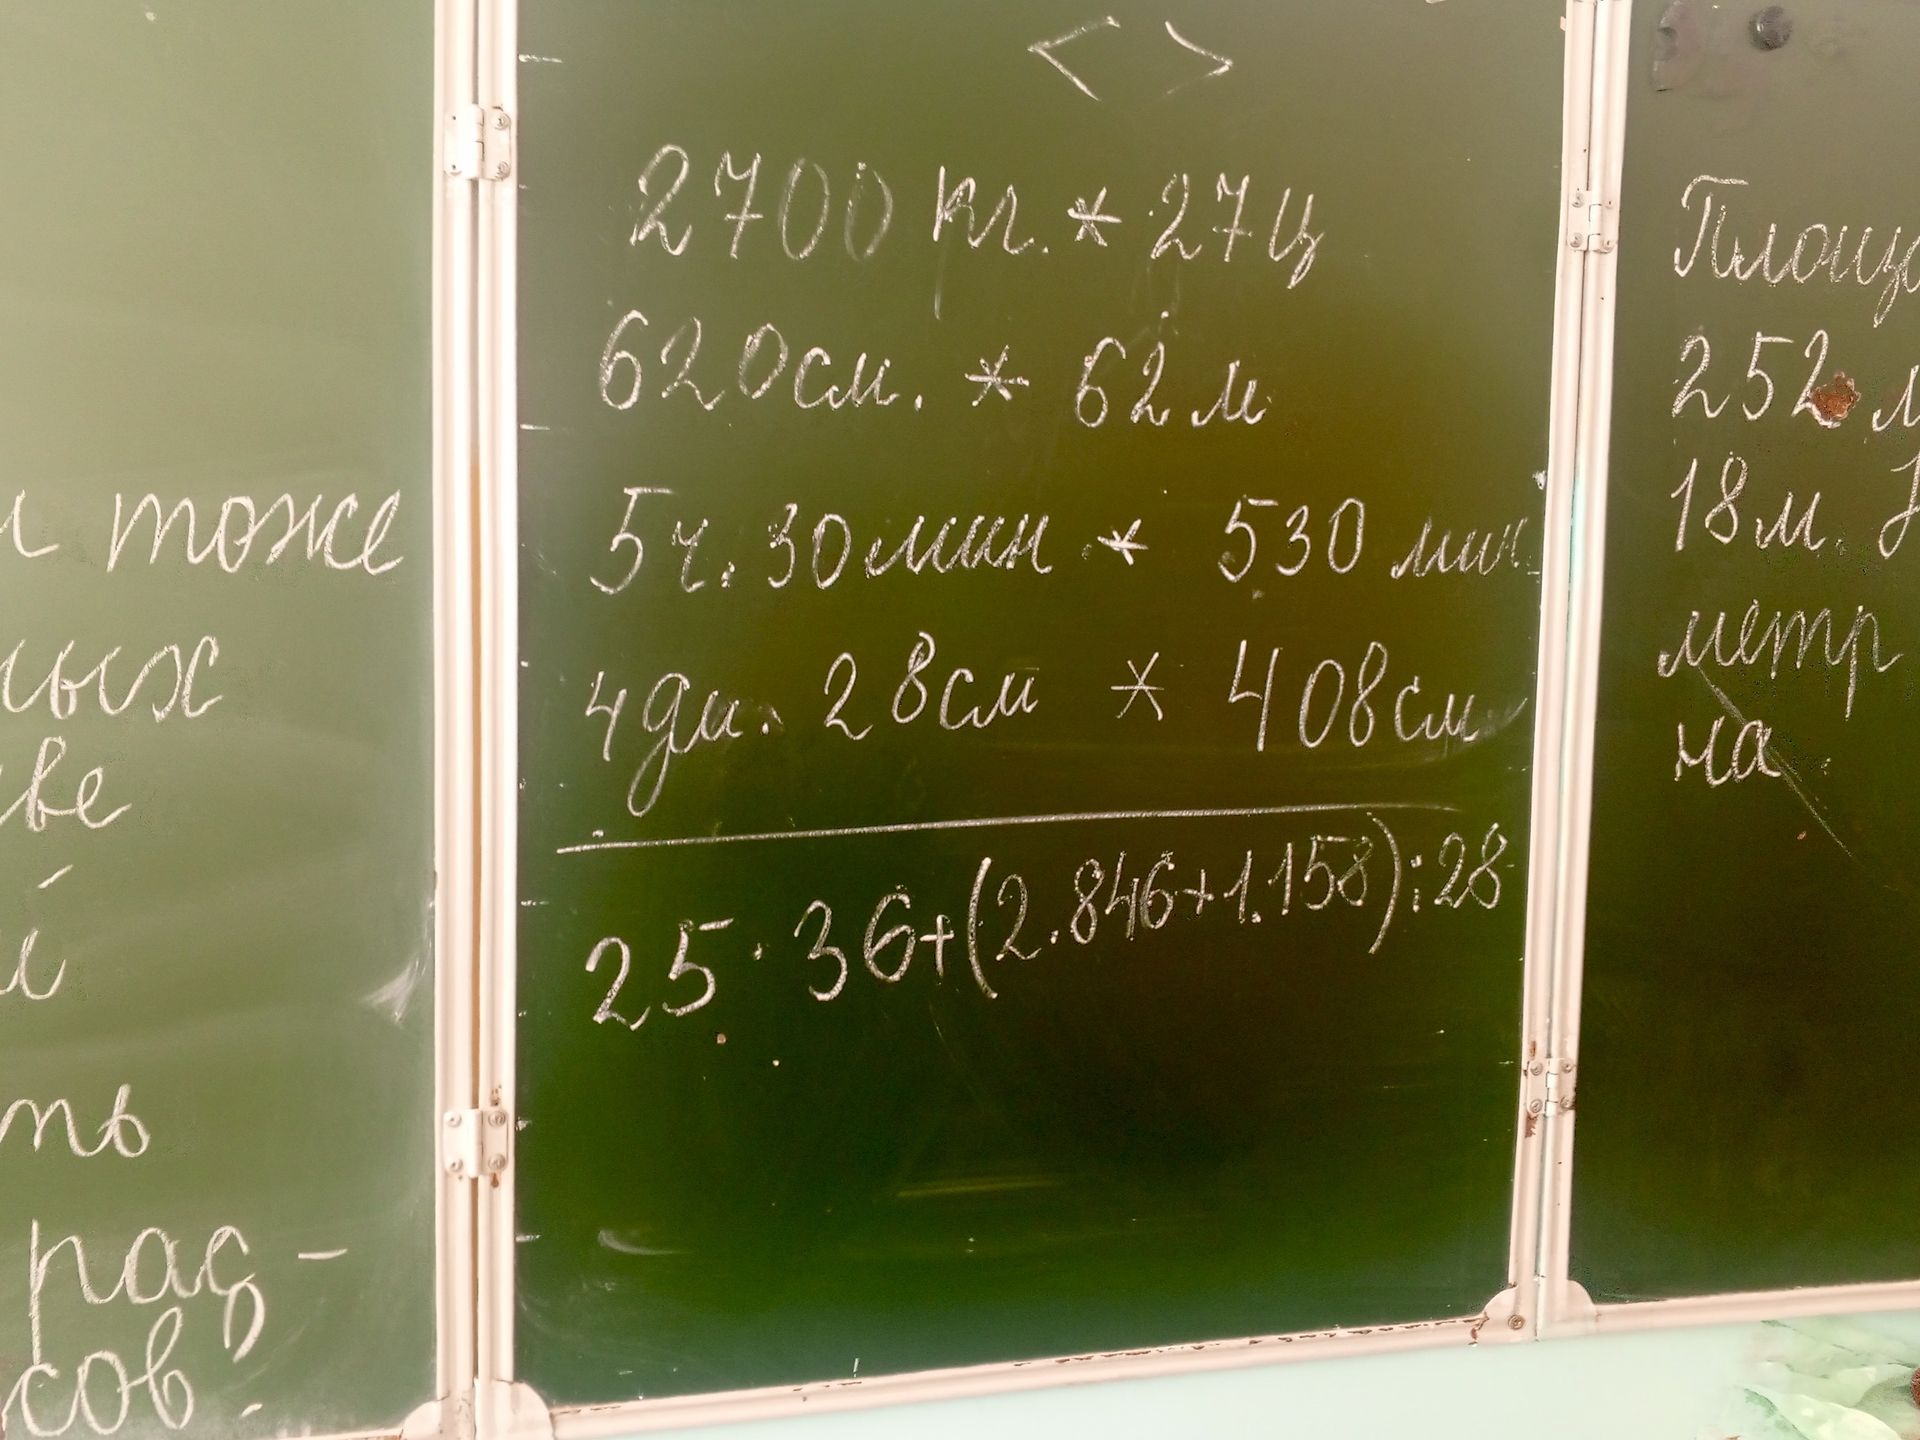 тоже
рас-
сов?
< >
2700 кг. * 27ц
620см. * 62м
5ч. 30мин * 530 мин.
4дм. 28см * 408см
25 · 36+(2.846+1.158):28
252 м
18м.
метр
на